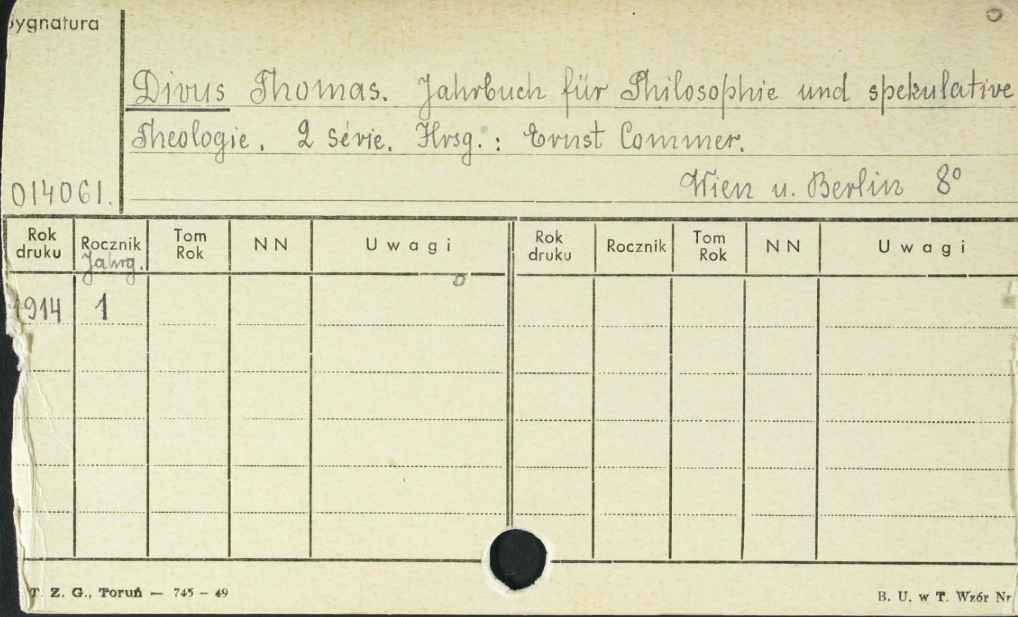 Sygnatura
Divus Thomas. Jahrbuch für Philosophie und spekulative
Theologie. 2 série. Hrsg.: Ernst Commer.
014061. Wien u. Berlin 8°
Rok druku Rocznik Tom Rok NN Uwagi Rok druku Rocznik Tom Rok NN Uwagi
Jahrg.
1914 1
T. Z. G., Toruń — 745 – 49 B. U. w T. Wzór Nr